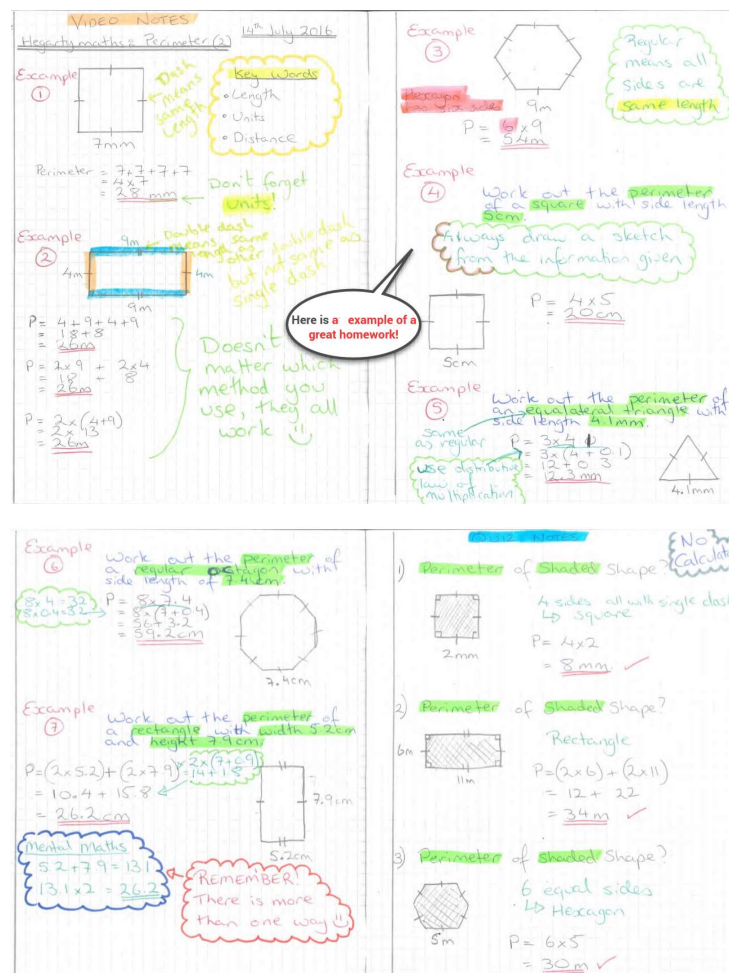 VIDEO NOTES
Hegartymaths: Perimeter (2)
14th July 2016
Example
1
Dash
means
same
length
7mm
Key Words
• Length
• Units
• Distance
Perimeter = 7+7+7+7
= 4x7
= 28 mm
Don't forget
units!
Example
2
9m
4m
4m
9m
Double dash
means same
length as
other double dash
but not same as
single dash
P = 4+9+4+9
= 18+8
= 26m
P = 2x9 + 2x4
= 18 + 8
= 26m
P = 2x(4+9)
= 2x 13
= 26m
Doesn't
matter which
method you
use, they all
work
Example
3
Hexagon
has six sides
9m
P = 6x9
= 54m
Regular
means all
sides are
same length
Example
4
Work out the perimeter
of a square with side length
5cm.
Always draw a sketch
from the information given
5cm
P = 4x5
= 20cm
Here is a example of a
great homework!
Example
5
Work out the perimeter of
an equalateral triangle with
side length 4.1mm.
same
as regular
use distributive
law of
multiplication
P = 3x4.1
= 3x(4 + 0.1)
= 12+0.3
= 12.3mm
4.1mm
Example
6
Work out the perimeter of
a regular octagon with
side length of 7.4cm.
8x4=32
8x0.4=3.2
P = 8x7.4
= 8x(7+0.4)
= 56+3.2
= 59.2cm
7.4cm
Example
7
Work out the perimeter of
a rectangle with width 5.2cm
and height 7.9cm.
P=(2x5.2)+(2x7.9)
= 10.4 + 15.8
= 26.2cm
2x(7+0.9)
=14+1.8
7.9cm
5.2cm
Mental Maths
5.2+7.9=13.1
13.1x2=26.2
REMEMBER!
There is more
than one way
QUIZ NOTES
No
Calculator
1) Perimeter of Shaded Shape?
2mm
4 sides all with single dash
↳ square
P = 4x2
= 8mm ✓
2) Perimeter of Shaded Shape?
6m
11m
Rectangle
P=(2x6)+(2x11)
= 12 + 22
= 34m ✓
3) Perimeter of shaded Shape?
5m
6 equal sides
↳ Hexagon
P = 6x5
= 30m ✓